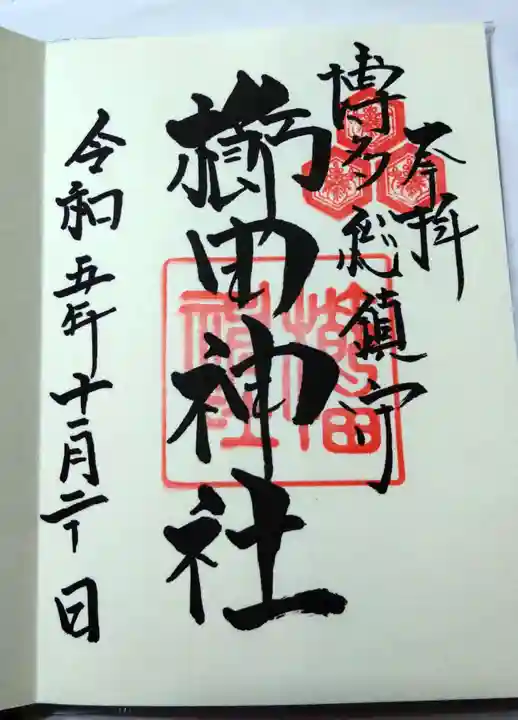 奉拝
博多総鎮守
櫛田神社
櫛田神社
令和五年十二月二十日